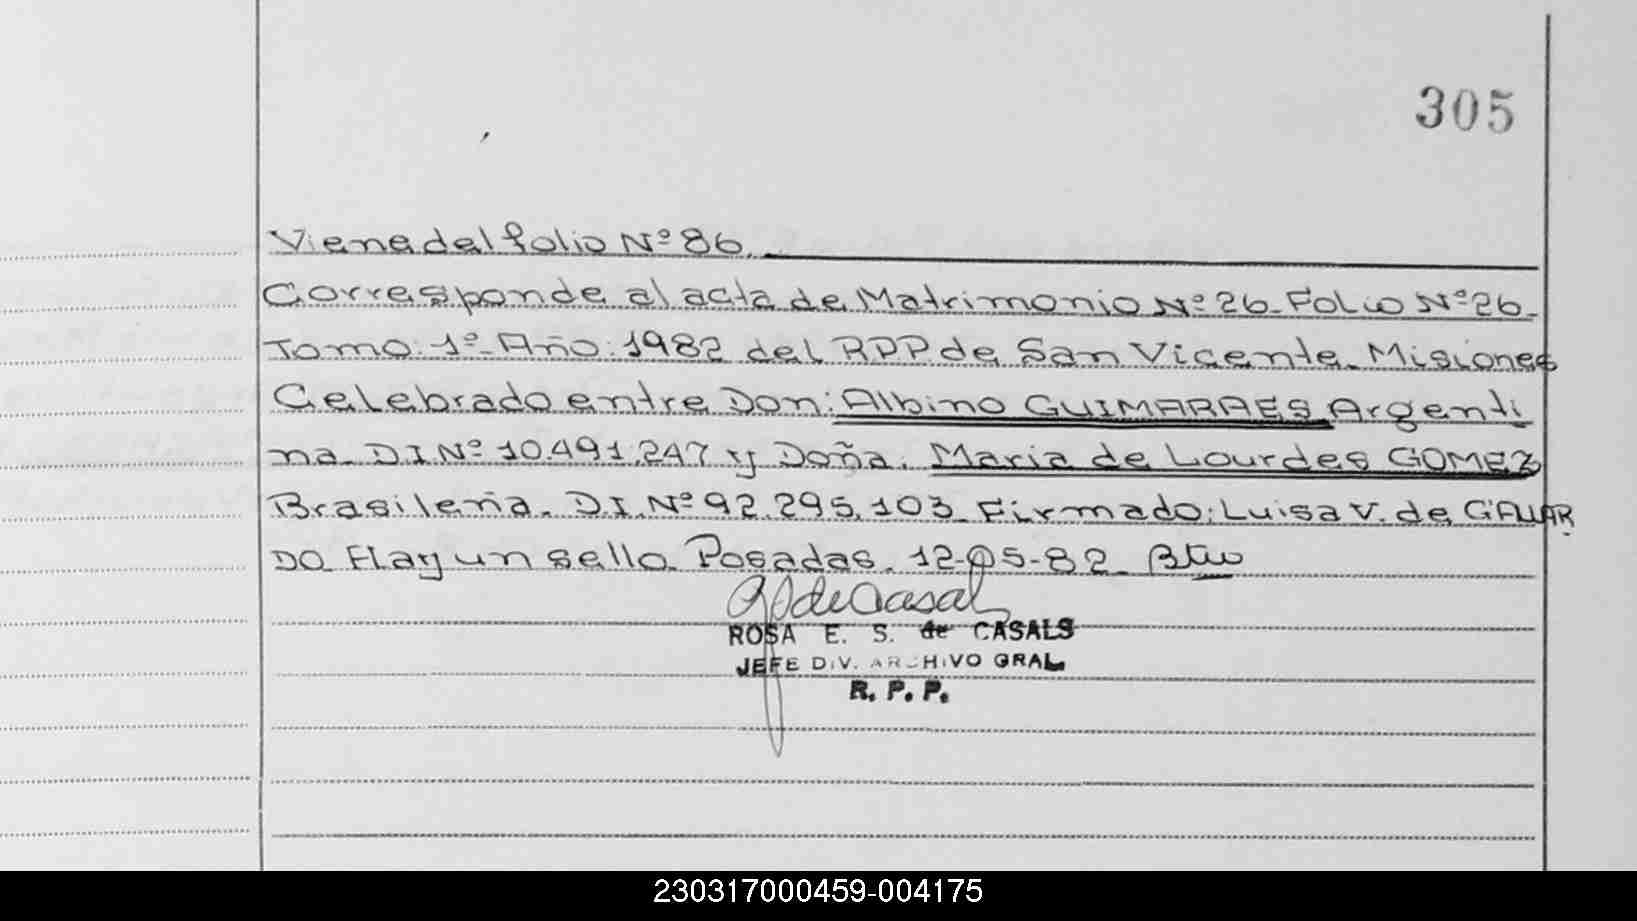 305
Viene del folio Nº 86.
Corresponde al acta de Matrimonio Nº 26. Folio Nº 26.
Tomo: 1º. Año: 1982 del RPP. de San Vicente. Misiones
Celebrado entre Don: Albino GUIMARAES Argenti
na. DI Nº 10.491.247 y Doña. Maria de Lourdes GOMEZ
Brasileña. D.I. Nº 92.295.103. Firmado: Luisa V. de GALLAR
DO. Hay un sello. Posadas. 12-05-82.
ROSA E. S. de CASALS
JEFE DIV. ARCHIVO GRAL.
R. P. P.
230317000459-004175